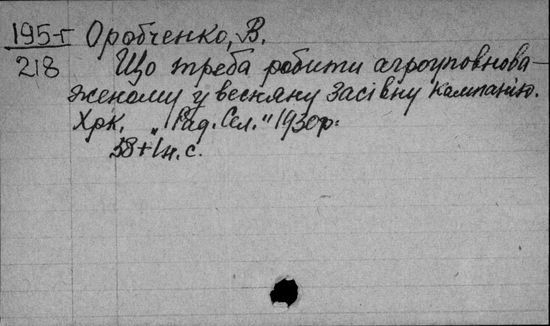 195-г Оробченко, В.
218 Що треба робити агроуповнова-
женому у весняну засівну кампанію.
Хрк. „Рад. Сел." 1930р.
38+1 н. с.